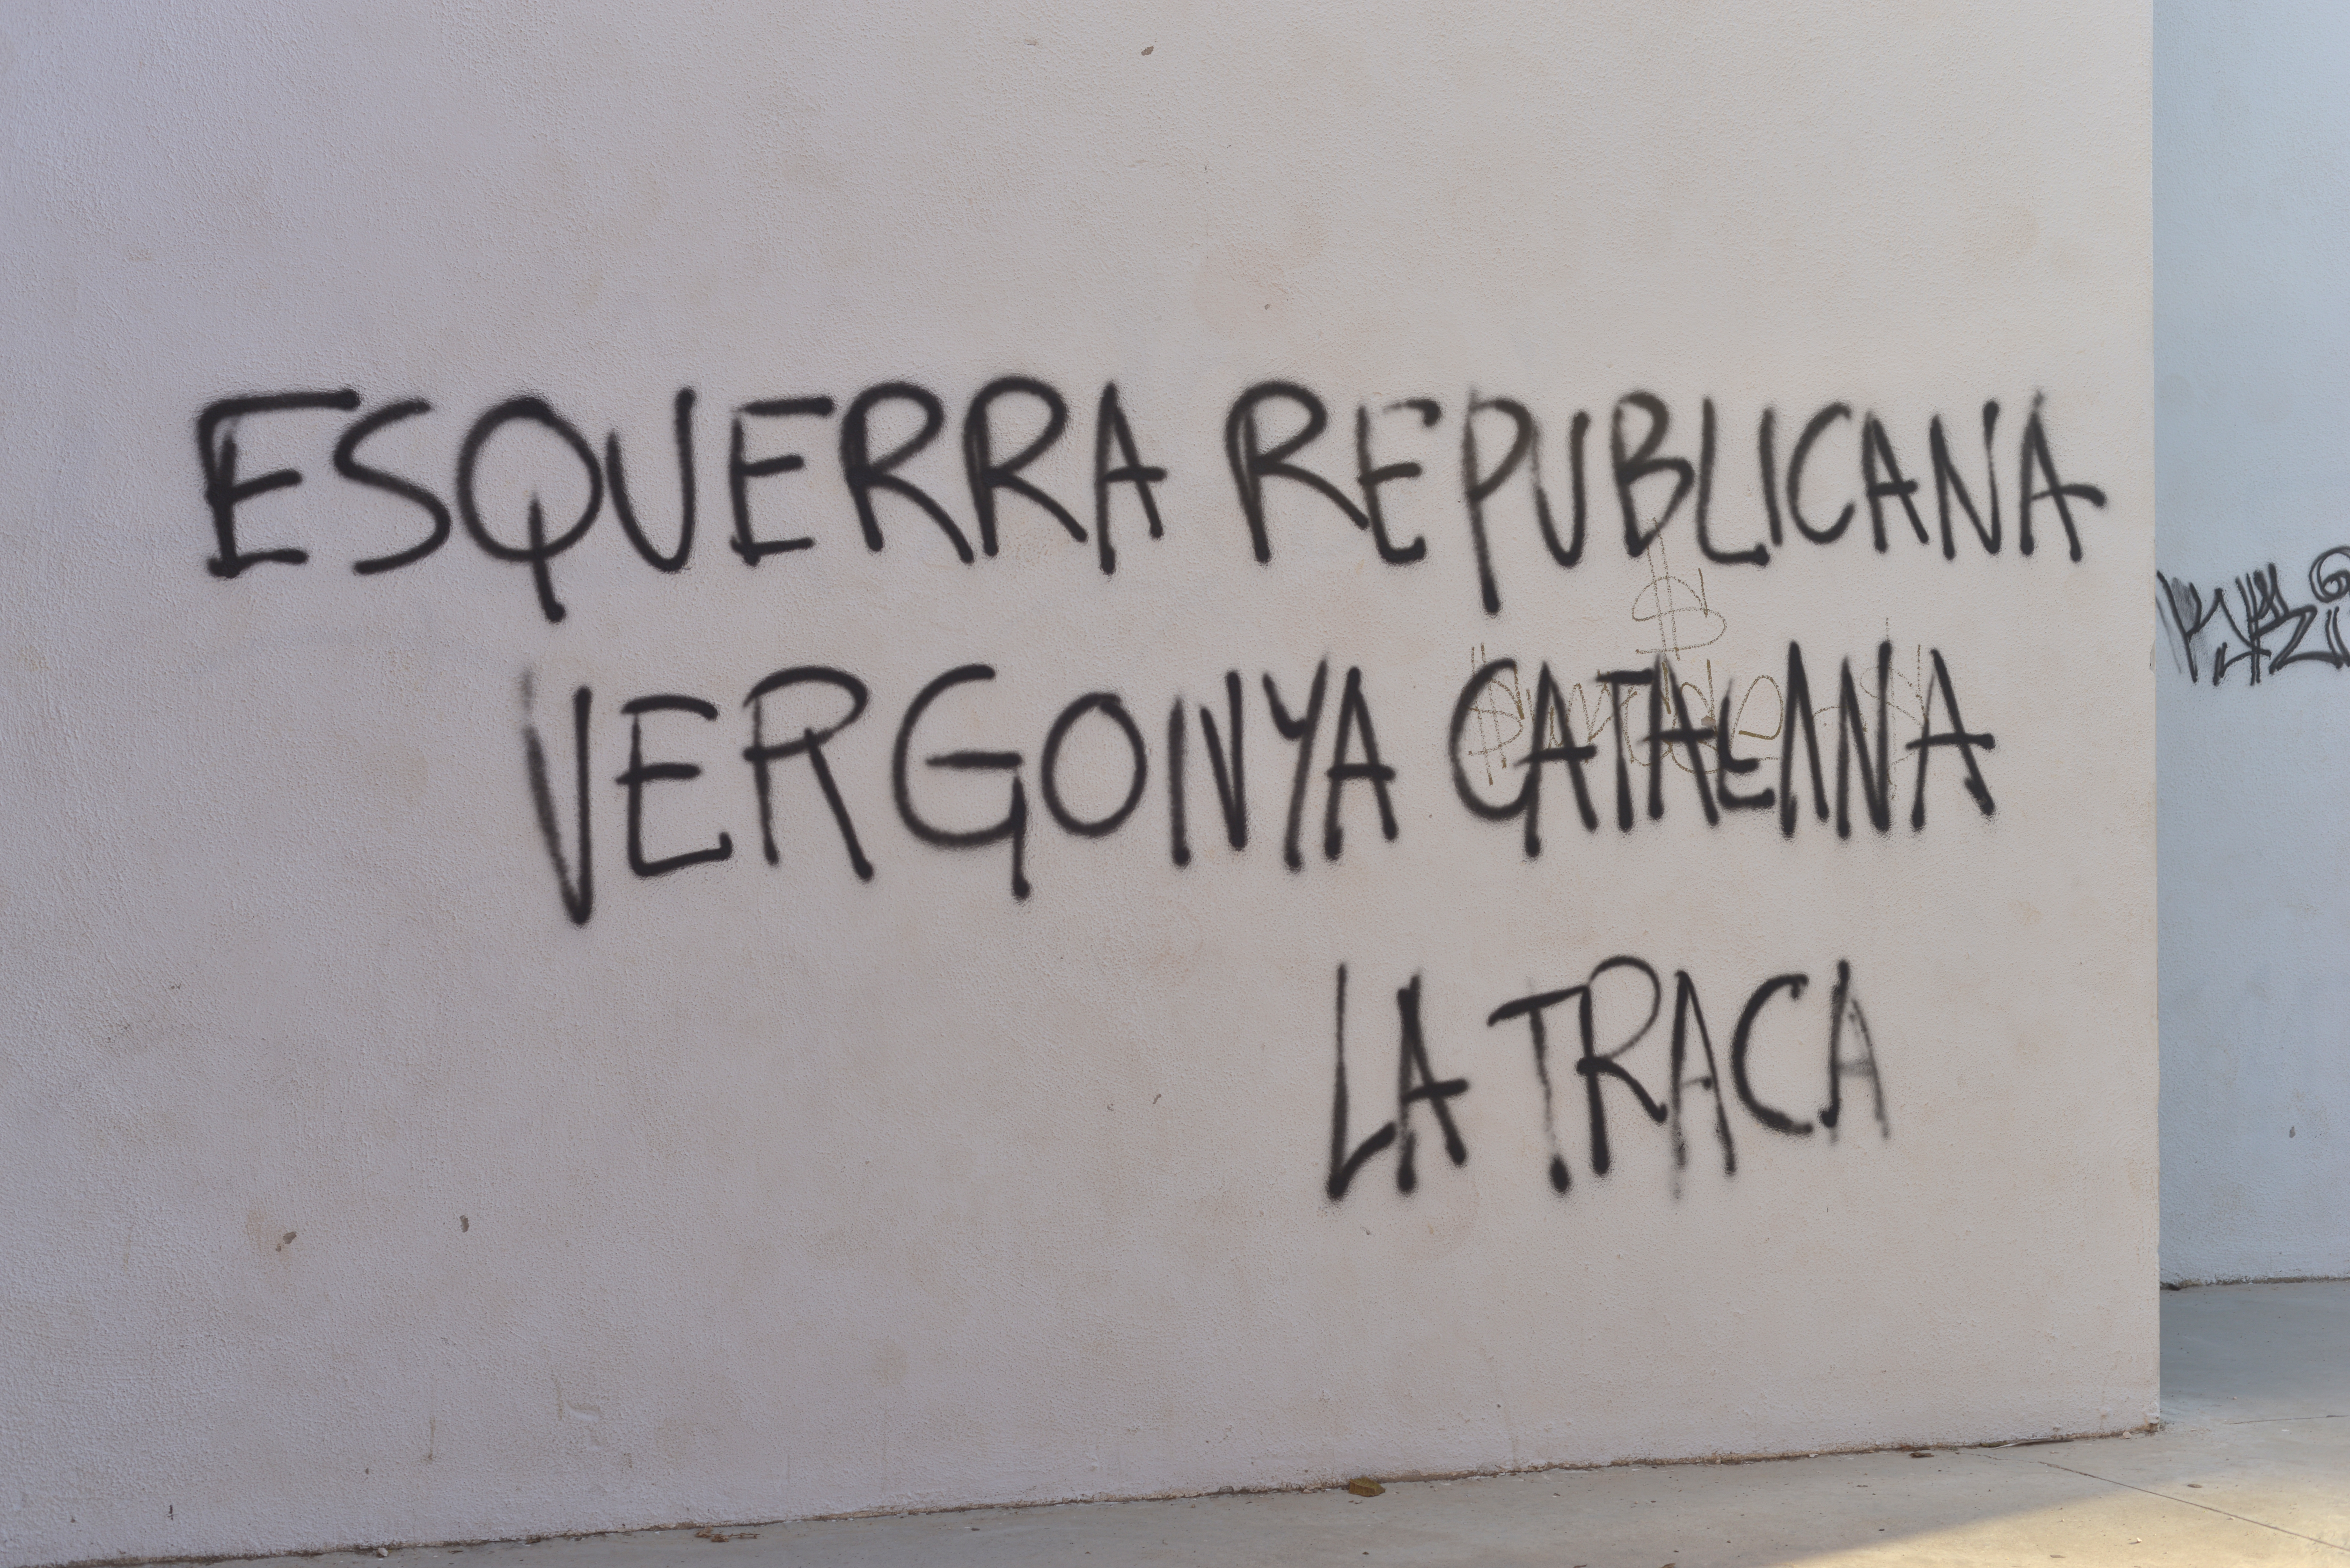 ESQUERRA REPUBLICANA
VERGONYA CATALANA
LA TRACA